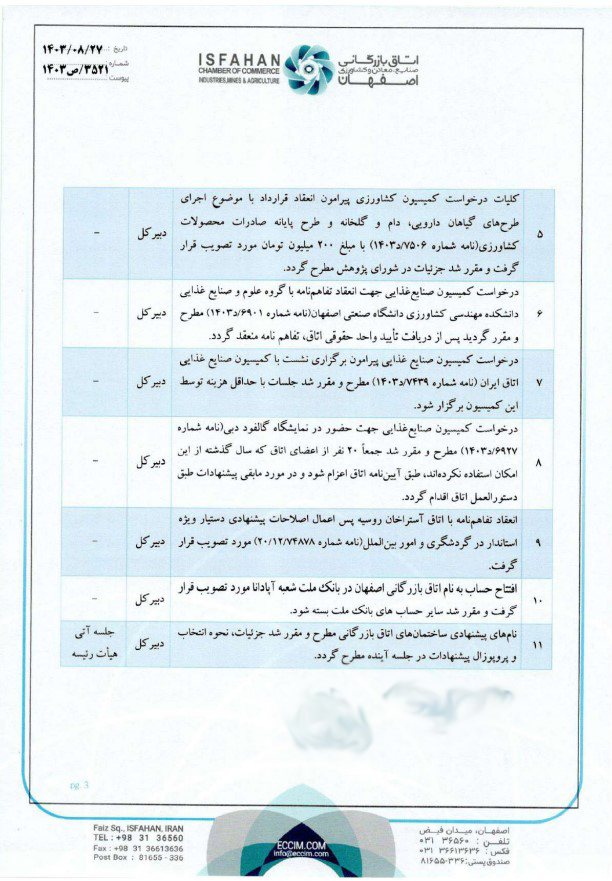 تاریخ : ۱۴۰۳/۰۸/۲۷
شماره : ۳۵۲۱/ص۱۴۰۳
پیوست
ISFAHAN
CHAMBER OF COMMERCE
INDUSTRIES, MINES & AGRICULTURE
اتاق بازرگانی
صنایع، معادن و کشاورزی
اصفهان
کلیات درخواست کمیسیون کشاورزی پیرامون انعقاد قرارداد با موضوع اجرای
طرح‌های گیاهان دارویی، دام و گلخانه و طرح پایانه صادرات محصولات
۵ دبیر کل -
کشاورزی(نامه شماره ۷۵۰۶/د۱۴۰۳) با مبلغ ۲۰۰ میلیون تومان مورد تصویب قرار
گرفت و مقرر شد جزئیات در شورای پژوهش مطرح گردد.
درخواست کمیسیون صنایع‌غذایی جهت انعقاد تفاهم‌نامه با گروه علوم و صنایع غذایی
۶ دانشکده مهندسی کشاورزی دانشگاه صنعتی اصفهان(نامه شماره ۶۹۰۱/د۱۴۰۳) مطرح دبیر کل -
و مقرر گردید پس از دریافت تأیید واحد حقوقی اتاق، تفاهم نامه منعقد گردد.
درخواست کمیسیون صنایع غذایی پیرامون برگزاری نشست با کمیسیون صنایع غذایی
۷ اتاق ایران (نامه شماره ۷۴۳۹/د۱۴۰۳) مطرح و مقرر شد جلسات با حداقل هزینه توسط دبیر کل -
این کمیسیون برگزار شود.
درخواست کمیسیون صنایع‌غذایی جهت حضور در نمایشگاه گالفود دبی(نامه شماره
۶۹۲۷/د۱۴۰۳) مطرح و مقرر شد جمعاً ۲۰ نفر از اعضای اتاق که سال گذشته از این
۸ دبیر کل -
امکان استفاده نکرده‌اند، طبق آیین‌نامه اتاق اعزام شود و در مورد مابقی پیشنهادات طبق
دستورالعمل اتاق اقدام گردد.
انعقاد تفاهم‌نامه با اتاق آستراخان روسیه پس اعمال اصلاحات پیشنهادی دستیار ویژه
۹ استاندار در گردشگری و امور بین‌الملل(نامه شماره ۲۰/۱۲/۷۴۸۷۸) مورد تصویب قرار دبیر کل -
گرفت.
۱۰ افتتاح حساب به نام اتاق بازرگانی اصفهان در بانک ملت شعبه آپادانا مورد تصویب قرار دبیر کل -
گرفت و مقرر شد سایر حساب های بانک ملت بسته شود.
۱۱ نام‌های پیشنهادی ساختمان‌های اتاق بازرگانی مطرح و مقرر شد جزئیات، نحوه انتخاب دبیر کل جلسه آتی
و پروپوزال پیشنهادات در جلسه آینده مطرح گردد. هیأت رئیسه
pg. 3
Faiz Sq., ISFAHAN, IRAN
TEL : +98 31 36560
Fax : +98 31 36613636
Post Box : 81655 - 336
ECCIM.COM
info@eccim.com
اصفهان، میدان فیض
تلفن : ۳۶۵۶۰ ۰۳۱
فکس : ۳۶۶۱۳۶۳۶ ۰۳۱
صندوق پستی: ۳۳۶-۸۱۶۵۵